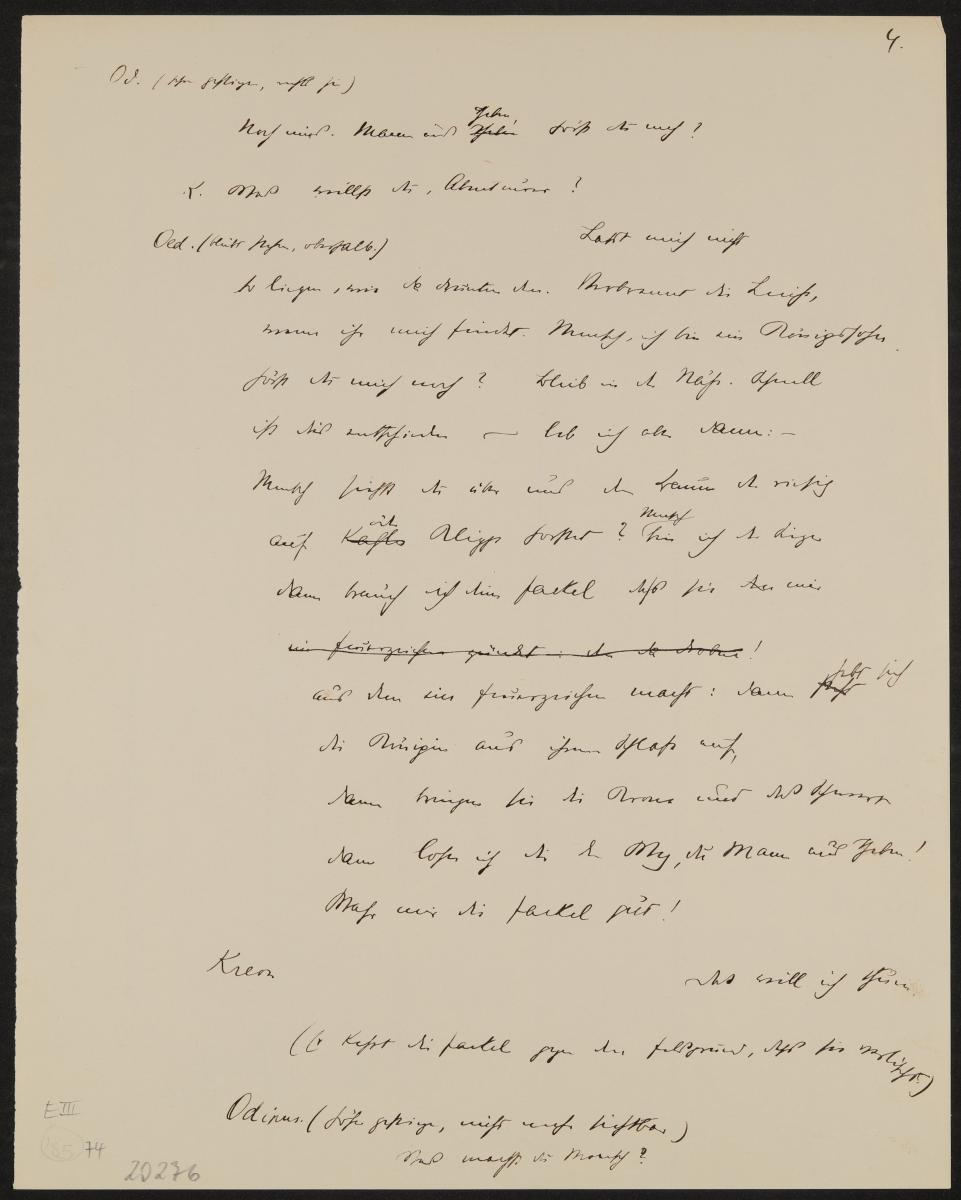 4.
Öd. (höher gestiegen, ruft hin)
Noch eins. Mann aus Theben! Theben hörst du mich?
K. Was willst du, Abenteurer?
Oed. (bleibt stehen, oberhalb.) Lasst mich nicht
so liegen, wie da drunten den. Verbrennt die Leiche,
wenn ihr mich findet. Mensch, ich bin ein Königssohn.
Hörst du mich noch? Bleib in der Nähe. Schnell
ist dies entschieden — leb ich aber dann: —
Mensch siehst du aber und den Baum der
auf Klippe ? Mensch bin ich der Sieger
dann brauch ich deine Fackel dass sie dem mir
ein Feuerzeichen zündet: der da droben!
aus dem ein Feuerzeichen macht: dann hebt sich
die Königin aus ihrem Schlafe auf,
dann bringen sie die Krone und das Schwert
dann lohn ich dir den Weg, du Mann aus Theben!
Wahr mir die Fackel gut!
Kreon Das will ich thun.
(Er kehrt die Fackel gegen den Felsgrund, dass sie verlischt.)
Ödipus. (höher gestiegen, nicht mehr sichtbar)
Was machst du Mensch?
E III
74
20236